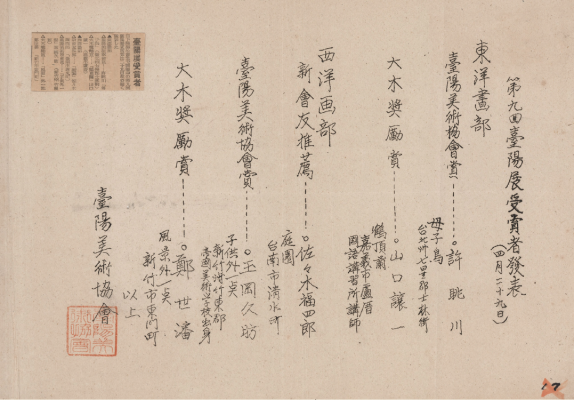 第九回臺陽展受賞者發表
(四月二十九日)
東洋畫部
臺陽美術協會賞……。許眺川
母子鳥
台北州七星郡士林街
大木奬勵賞……。山口讓一
鶴頂蘭
嘉義市盧厝
國語講習所講師
西洋画部
新會友推薦……。佐々木福四郎
庭園
台南市清水町
臺陽美術協會賞……。玉岡久昉
子供外一点
新竹州竹東郡
大木奬勵賞……。鄭世璠
風景外一点
新竹市東門町
以上
臺陽美術協會
臺陽展受賞者